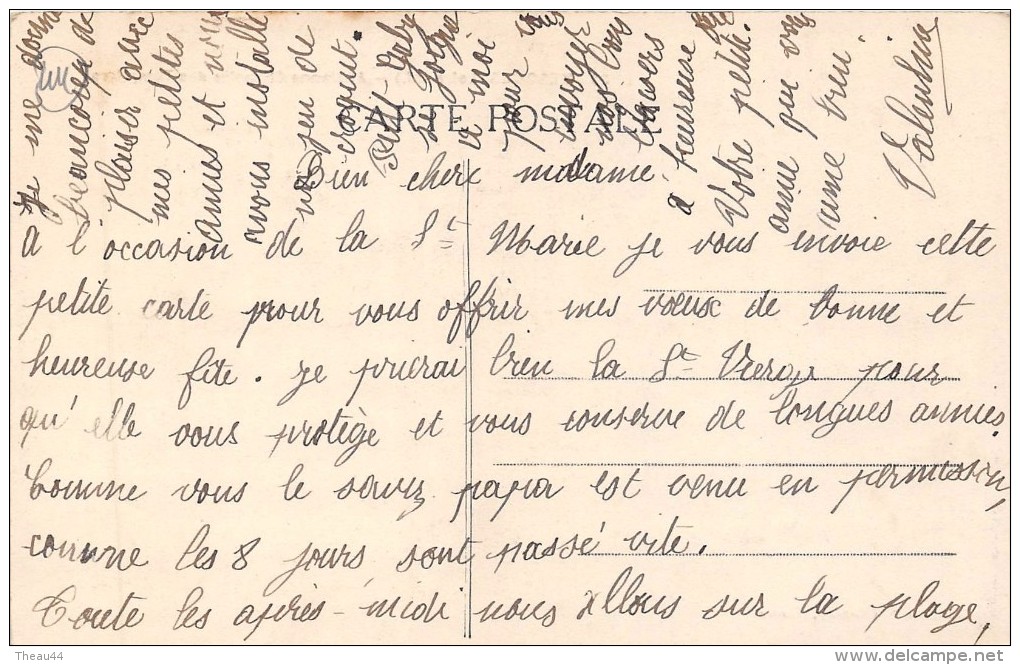 CARTE POSTALE
Bien chere madame.
à l'occasion de la St Marie je vous envoie cette
petite carte pour vous offrir mes vœux de bonne et
heureuse fête. je prierai bien la St Vierge pour
qu'elle vous protège et vous conserve de longues années.
Comme vous le savez papa est venu en permission,
comme les 8 jours sont passé vite.
Toute les après-midi nous allons sur la plage,
je me donne
beaucoup de
plaisir avec
mes petites
amies et nous
avons installé
un peu de
Gaby
a moi
pour vous
envoyer
nos
heureuse
Votre petite
amie qui vous
aime bien.
Valentine
Theau44
delcampe.net